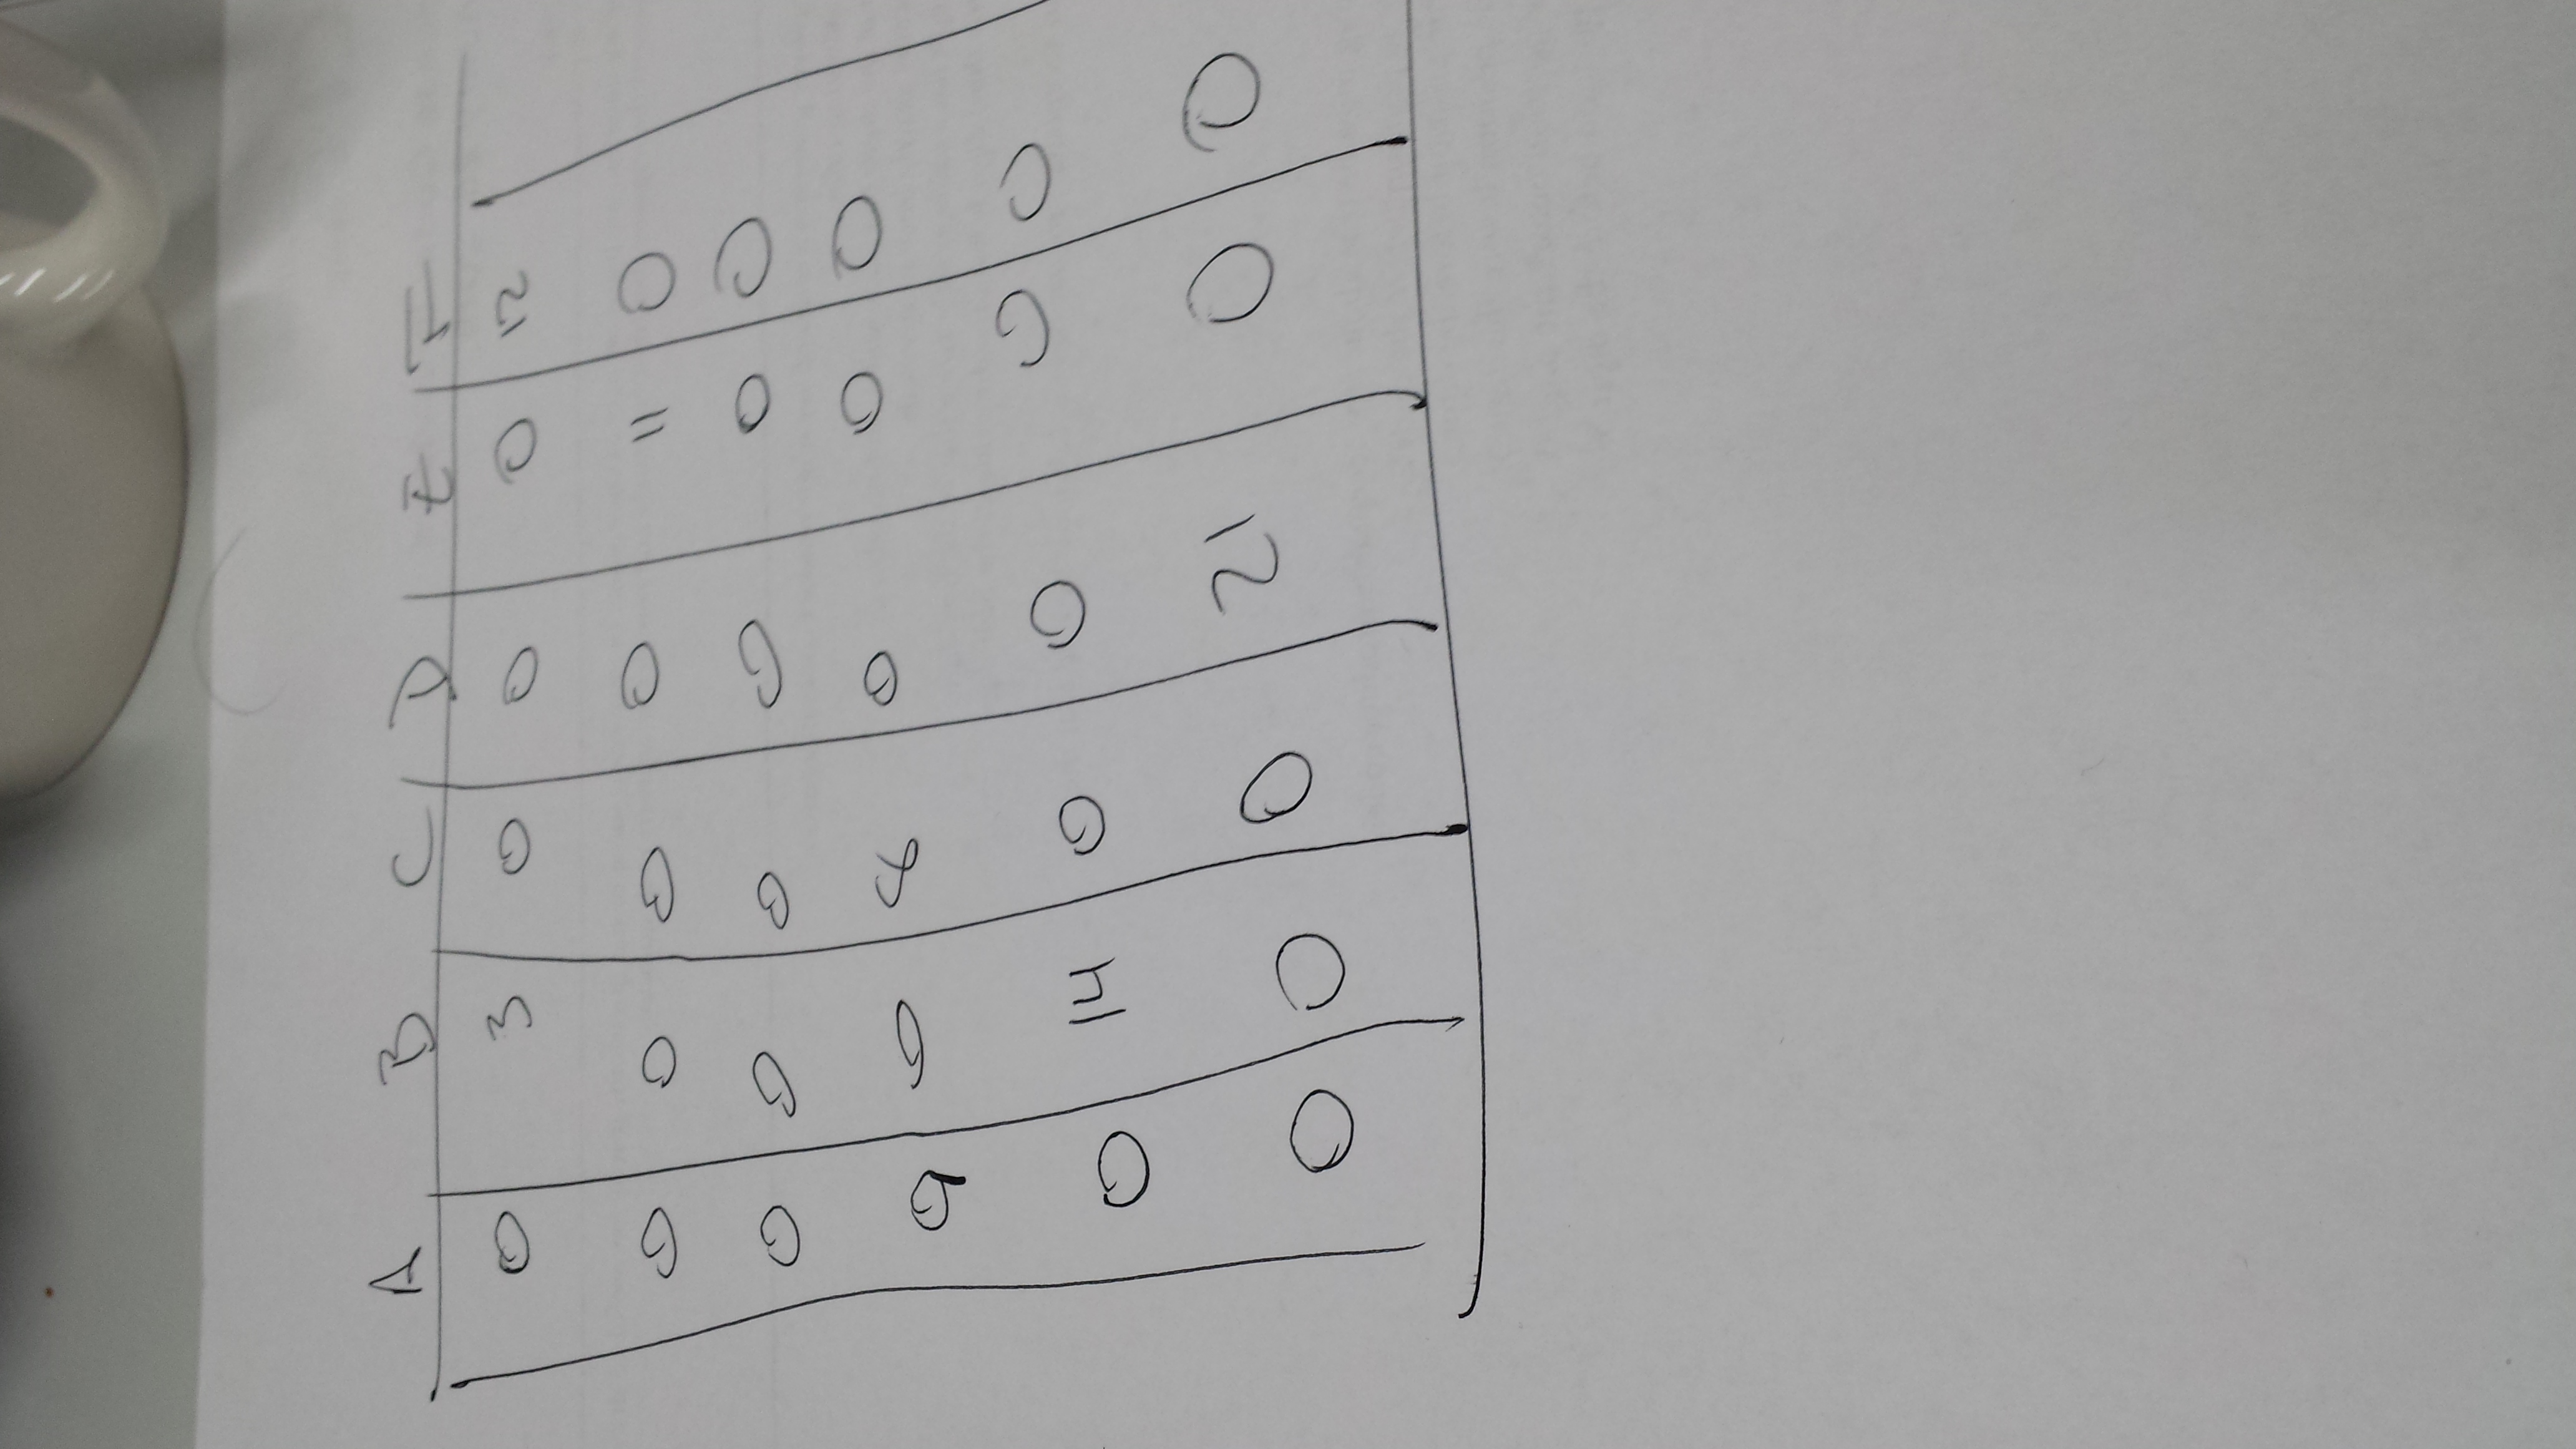 A B C D E F
0 3 0 0 0 12
0 0 0 0 11 0
0 0 0 0 0 0
9 0 8 0 0 0
0 14 0 0 0 0
0 0 0 21 0 0